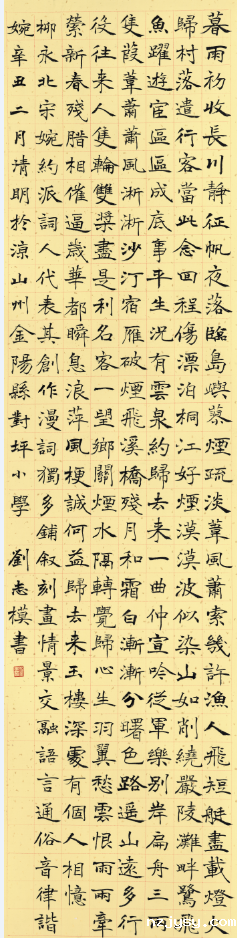 暮雨初收長川靜征帆夜落臨島嶼蓼煙疏淡葦風蕭索幾許漁人飛短艇盡載燈火
歸村落遣行客當此念回程傷漂泊桐江好煙漠漠波似染山如削繞嚴陵灘畔鷺飛
魚躍遊宦區區成底事平生況有雲泉約歸去來一曲仲宣吟從軍樂別岸扁舟三兩
隻葭葦蕭蕭風淅淅沙汀宿雁破煙飛溪橋殘月和霜白漸漸分曙色路遥山遠多行
役往來人隻輪雙槳盡是利名客一望鄉關煙水隔轉覺歸心生羽翼愁雲恨雨兩牽
縈新春殘臘相催逼歲華都瞬息浪萍風梗誠何益歸去來玉樓深處有個人相憶
柳永北宋婉約派詞人代表其創作漫詞獨多鋪敘刻畫情景交融語言通俗音律諧
婉辛丑二月清明於涼山州金陽縣對坪小學 劉志模書